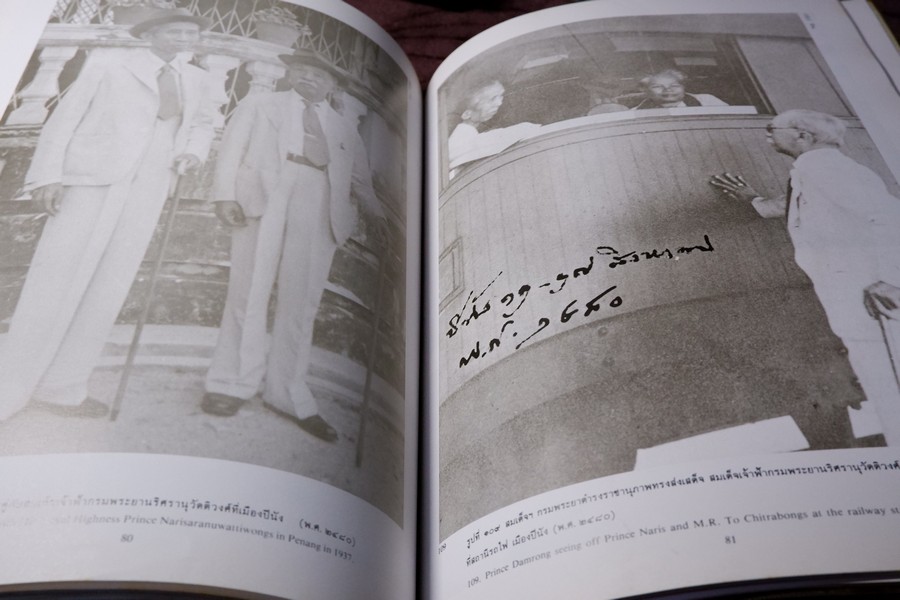 เจ้าฟ้ากรมพระยานริศรานุวัดติวงศ์ที่เมืองปีนัง (พ.ศ. ๒๔๘๐)
Highness Prince Narisaranuwattiwongs in Penang in 1937.
80
พ.ศ. ๒๔๘๐
109
รูปที่ ๑๐๙ สมเด็จฯ กรมพระยาดำรงราชานุภาพทรงส่งเสด็จ สมเด็จเจ้าฟ้ากรมพระยานริศรานุวัดติวงศ์
ที่สถานีรถไฟ เมืองปีนัง (พ.ศ. ๒๔๘๐)
109. Prince Damrong seeing off Prince Naris and M.R. To Chitrabongs at the railway
81